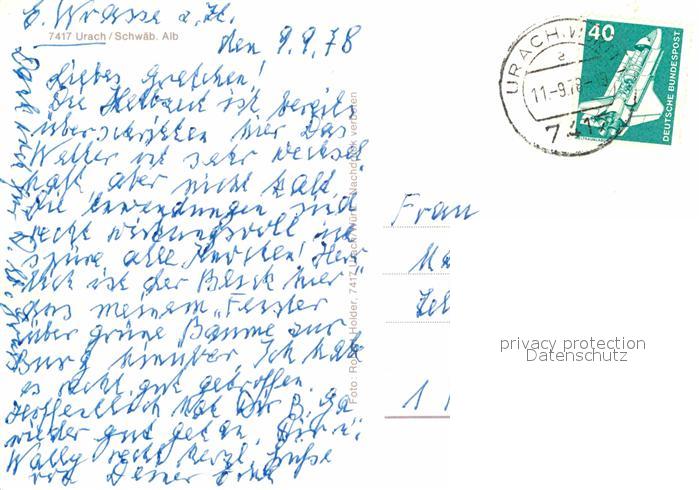 E. Wrasse z. Zt.
7417 Urach / Schwäb. Alb
den 9.9.78
Liebes Gretchen!
Die Halbzeit ist bereits
überschritten hier. Das
Wetter ist sehr wechsel
haft aber nicht kalt.
Die Anwendungen sind
recht wirkungsvoll ich
spüre alle Knochen! Herr
lich ist der Blick hier
aus meinem Fenster
über grüne Bäume zur
Burg hinüber. Ich hab
es recht gut getroffen.
Hoffentlich hat Dir B.
wieder gut getan. Dir u.
Wally recht herzl. Grüße
von Deiner
Foto: Holder, 7417 Urach/Württ. Nachdruck verboten
URACH, W
a
11.-9.78
741
40
DEUTSCHE BUNDESPOST
Frau
privacy protection
Datenschutz